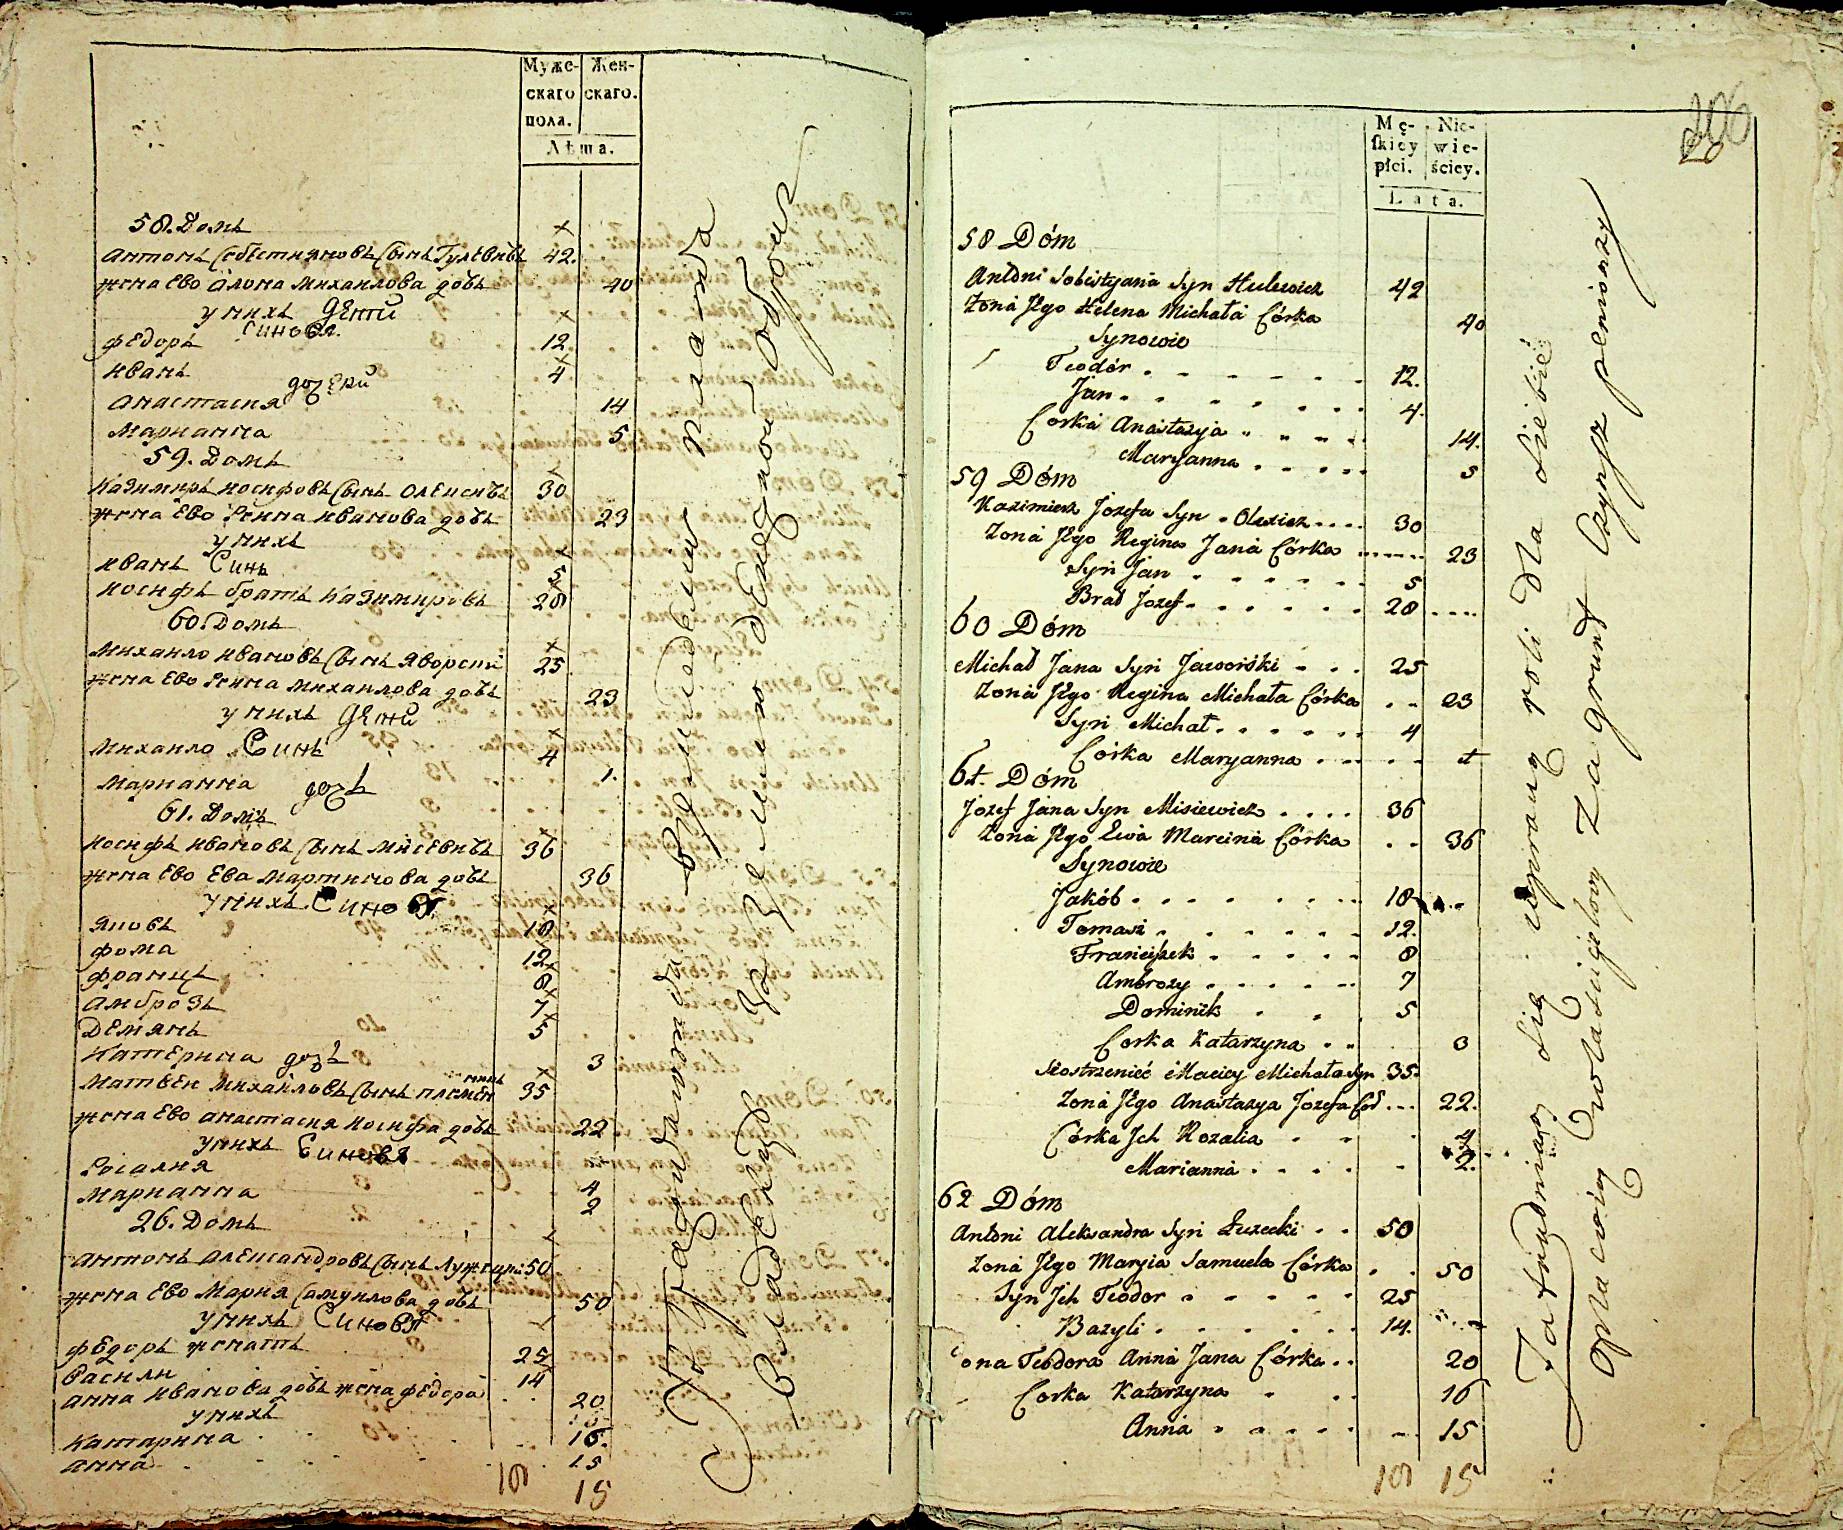 Муже-
скаго
пола.
Жен-
скаго.
Лѣта.
58. Домъ
Антонъ Собестияновъ Сынъ Гулевичъ 42.
жена Ево Алона Михаилова дочь 40
у нихъ Дети
Синовя.
Федоръ 12.
Иванъ 4
дочери
Анастасия 14
Марианна 5
59. Домъ
Казимиръ Иосифовъ Сынъ Олексичъ 30
жена Ево Регина Иванова дочь 23
у нихъ
Иванъ Синъ 5
Иосифъ братъ Казимировъ 28
60. Домъ
Михаило Ивановъ Сынъ Яворски 25
жена Ево Регина Михаилова дочь 23
у нихъ Дети
Михаило Синъ 4
Марианна дочъ 1.
61. Домъ
Иосифъ Ивановъ Сынъ Мисевичъ 36
жена Ево Ева Мартинова дочь 36
у нихъ Синовя
Яковъ 18
Фома 12
Францъ 8
Амброзъ 7
Демянъ 5
Катерина дочъ 3
Матвеи Михаиловъ Сынъ племен 35
жена Ево Анастасия Иосифа дочь 22
у нихъ Синовя
Росалия 4
Марианна 2
26. Домъ
Антонъ Александровъ Сынъ Лужецки 50
жена Ево Мария Самуилова дочь 50
у нихъ Синовя
Федоръ женатъ 25
Васили 14
Анна Иванова дочь жена Федора 20
у нихъ
Катарина 16.
Анна 15
18 15
206
Mę-
skiey
płci.
Nie-
wie-
ściey.
Lata.
58 Dóm
Antóni Sobestyana Syn Hulewicz 42
Żona Jego Helena Michała Córka 40
Synowie
Teodór 12.
Jan 4.
Corka Anastazya 14.
Maryanna 5
59 Dóm
Kazimierz Jozefa Syn Olexicz 30
Żona Jego Regina Jana Córka 23
Syn Jan 5
Brat Jozef 28
60 Dóm
Michał Jana Syn Jaworski 25
Żona Jego Regina Michała Córka 23
Syn Michał 4
Corka Maryanna 1
61. Dóm
Jozef Jana Syn Misiewicz 36
Żona Jego Ewa Marcina Córka 36
Synowie
Jakób 18
Tomasz 12.
Franciszek 8
Ambroży 7
Dominik 5
Corka Katarzyna 3
Siostrzeniec Maciey Michała Syn 35.
Żona Jego Anastazya Jozefa Cór 22.
Córka Jch Rozalia 4
Marianna 2.
62 Dóm
Antóni Aleksandra Syn Łuzecki 50
Żona Jego Maryia Samuela Córka 50
Syn Jch Teodor 25
Bazyli 14.
ona Teodora Anna Jana Córka 20
Corka Katarzyna 16
Anna 15
18 15
Zatrudniaią się uprawą roli dla siebie
opłacaią właścicielowy za grunt czynsz pieniężny